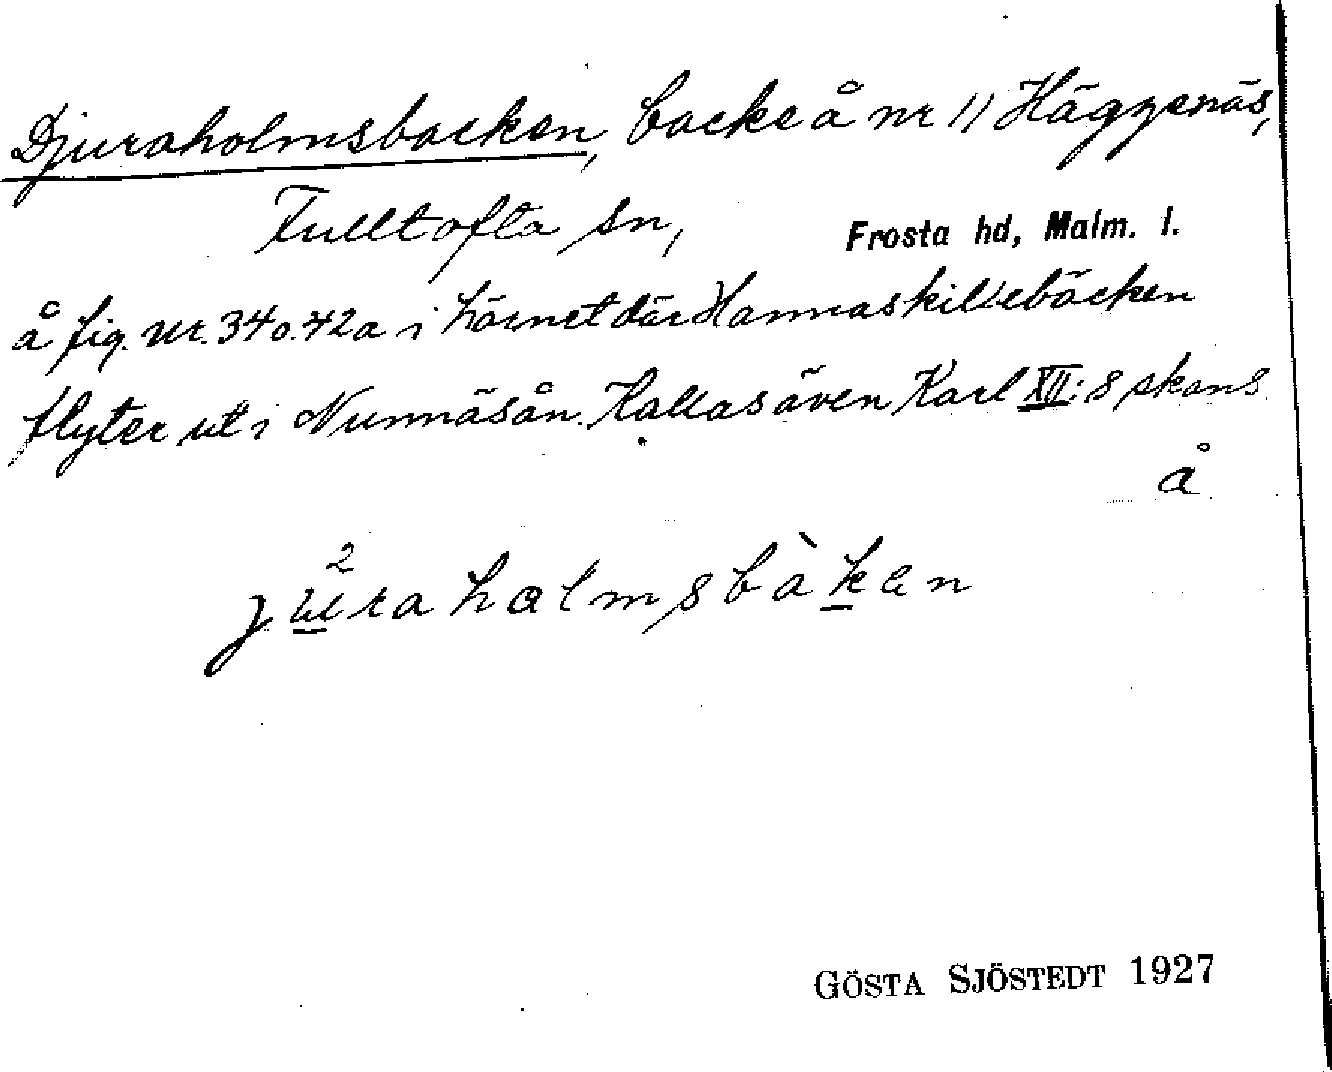 Djuraholmsbacken, backe å nr 11 Häggenäs,
Fulltofta sn, Frosta hd, Malm. l.
å fig. nr. 34 o. 42a i hörnet där Hannaskillebäcken
flyter ut i Nunnäsån. Kallas även Karl XII:s skans
å
jura halmsbàkan
GÖSTA SJÖSTEDT 1927